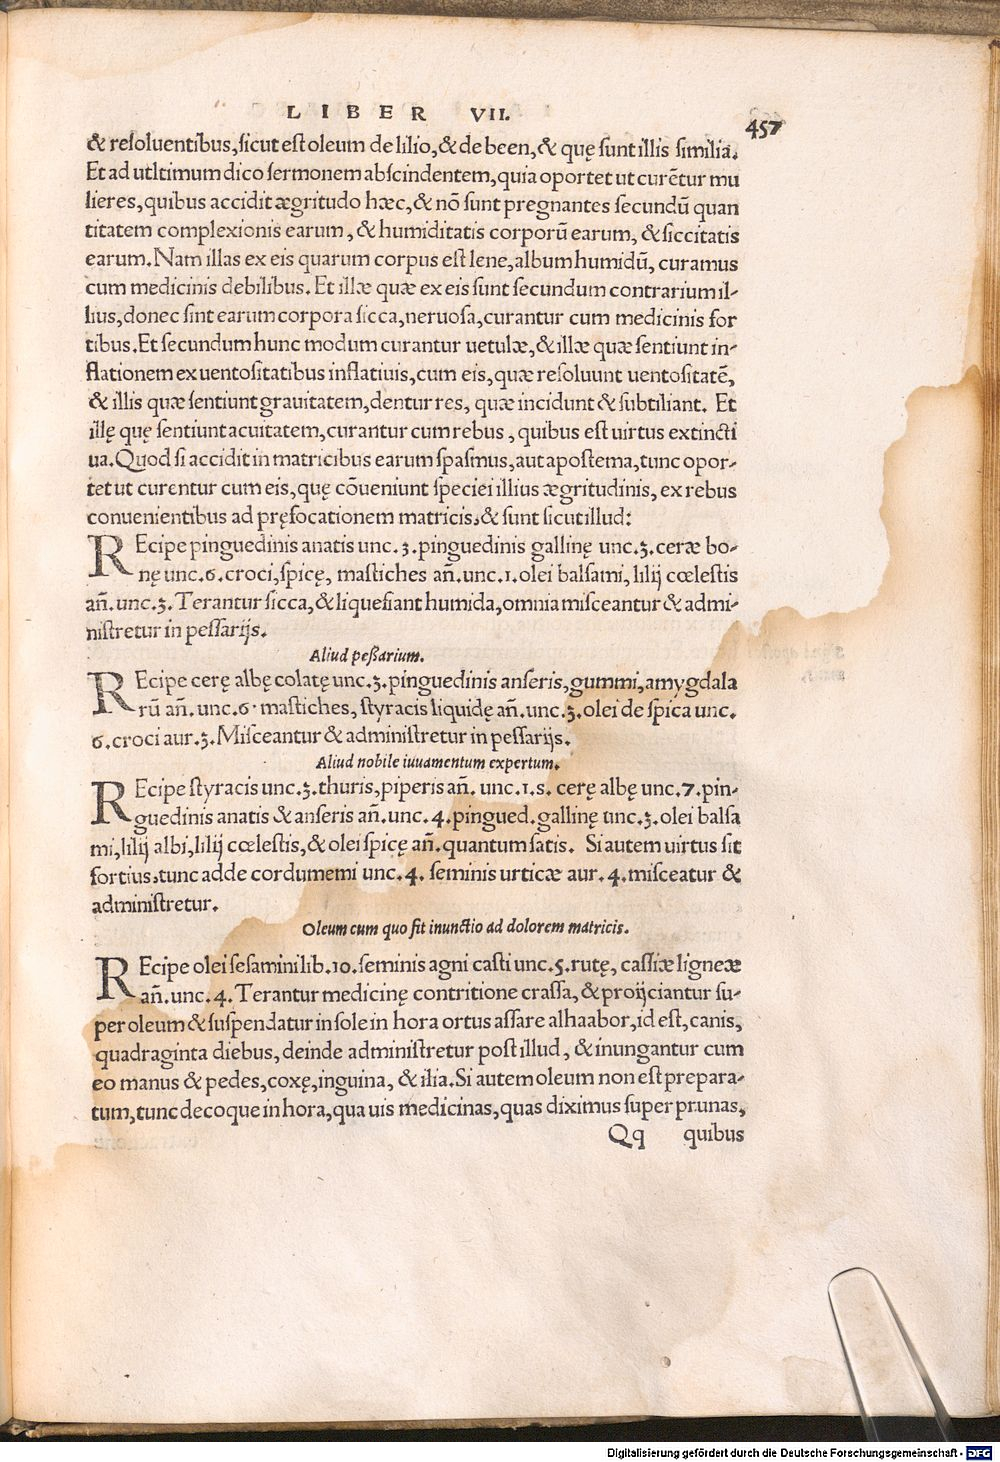 LIBER VII. 457
& resoluentibus, sicut est oleum de lilio, & de been, & quę sunt illis similia.
Et ad utltimum dico sermonem abscindentem, quia oportet ut curẽtur mu
lieres, quibus accidit ægritudo hæc, & nõ sunt pregnantes secundũ quan
titatem complexionis earum, & humiditatis corporũ earum, & siccitatis
earum. Nam illas ex eis quarum corpus est lene, album humidũ, curamus
cum medicinis debilibus. Et illæ quæ ex eis sunt secundum contrarium il-
lius, donec sint earum corpora sicca, neruosa, curantur cum medicinis for
tibus. Et secundum hunc modum curantur uetulæ, & illæ quæ sentiunt in-
flationem ex uentositatibus inflatiuis, cum eis, quæ resoluunt uentositatẽ,
& illis quæ sentiunt grauitatem, dentur res, quæ incidunt & subtiliant. Et
illę quę sentiunt acuitatem, curantur cum rebus, quibus est uirtus extincti
ua. Quod si accidit in matricibus earum spasmus, aut apostema, tunc opor-
tet ut curentur cum eis, quę cõueniunt speciei illius ægritudinis, ex rebus
conuenientibus ad pręfocationem matricis, & sunt sicut illud:
REcipe pinguedinis anatis unc. 3. pinguedinis gallinę unc. 3. ceræ bo-
nę unc. 6. croci, spicę, mastiches añ. unc. 1. olei balsami, lilij cœlestis
añ. unc. 3. Terantur sicca, & liquefiant humida, omnia misceantur & admi-
nistretur in pessarijs.
Aliud peßarium.
REcipe cerę albę colatę unc. 3. pinguedinis anseris, gummi, amygdala
rũ añ. unc. 6. mastiches, styracis liquidę añ. unc. 3. olei de spica unc.
6. croci aur. 3. Misceantur & administretur in pessarijs.
Aliud nobile iuuamentum expertum.
REcipe styracis unc. 3. thuris, piperis añ. unc. 1. s. cerę albę unc. 7. pin-
guedinis anatis & anseris añ. unc. 4. pingued. gallinę unc. 3. olei balsa
mi, lilij albi, lilij cœlestis, & olei spicę añ. quantum satis. Si autem uirtus sit
fortius, tunc adde cordumemi unc. 4. seminis urticæ aur. 4. misceatur &
administretur.
Oleum cum quo fit inunctio ad dolorem matricis.
REcipe olei sesamini lib. 10. seminis agni casti unc. 5. rutę, cassiæ ligneæ
añ. unc. 4. Terantur medicinę contritione crassa, & proijciantur su-
per oleum & suspendatur in sole in hora ortus assare alhaabor, id est, canis,
quadraginta diebus, deinde administretur post illud, & inungantur cum
eo manus & pedes, coxę, inguina, & ilia. Si autem oleum non est prepara-
tum, tunc decoque in hora, qua uis medicinas, quas diximus super prunas,
Qq quibus
Digitalisierung gefördert durch die Deutsche Forschungsgemeinschaft - DFG